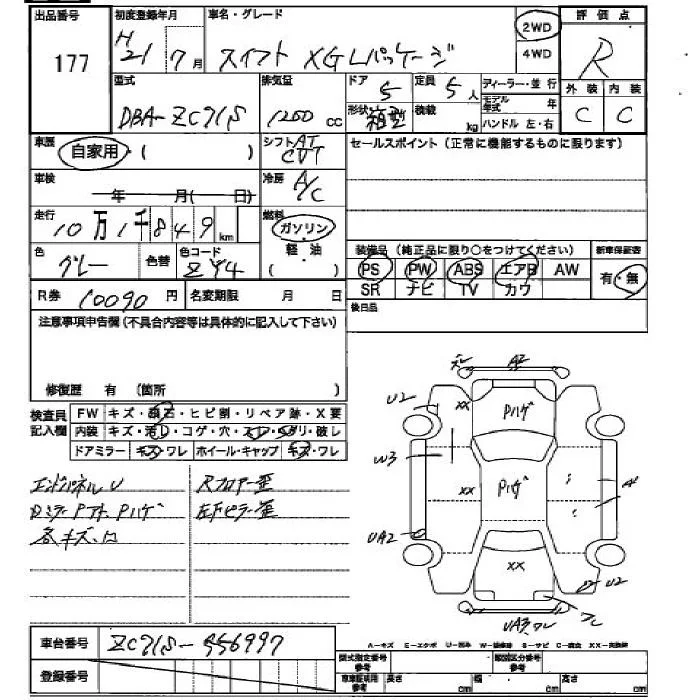 出品番号 初度登録年月 車名・グレード 2WD 4WD 評価点
177 H21 7月 スイフト XG Lパッケージ R
型式 排気量 ドア 定員 ディーラー・並行 外装 内装
DBA-ZC71S 1200 cc 5 5人 モデル年式 年 C C
形状 箱型 積載 kg ハンドル 左・右
車歴 自家用・( ) シフト AT CVT セールスポイント (正常に機能するものに限ります)
車検 年 月( 日) 冷房 A/C
走行 10万1千849 km 燃料 ガソリン・軽・油 ( )
色 グレー 色替 色コード ZY4
装備品 (純正品に限り○をつけてください) 新車保証書
PS PW ABS エアB AW 有・無
SR ナビ TV カワ
R券 10090 円 名変期限 月 日 後日品
注意事項申告欄(不具合内容等は具体的に記入して下さい)
修復歴 有 (箇所 )
検査員記入欄 FW キズ・飛石・ヒビ割・リペア跡・X要
内装 キズ・汚レ・コゲ・穴・スレ・ヘタリ・破レ
ドアミラー キズ・ワレ ホイール・キャップ キズ・ワレ
エンドパネルU Rフロアー歪
DミラーPアト Pハゲ 左Fピラー歪
各キズ・凹
U2 XX Pハゲ
W3 XX Pハゲ
UA2 XX U2
UA3ワレ
A-キズ E-エクボ U-凹 W-補修跡 S-サビ C-腐食 XX-交換済
車台番号 ZC71S-556997
登録番号
型式指定番号 参考 類別区分番号 参考
車車証明用 参考 長さ cm 幅 cm 高さ cm